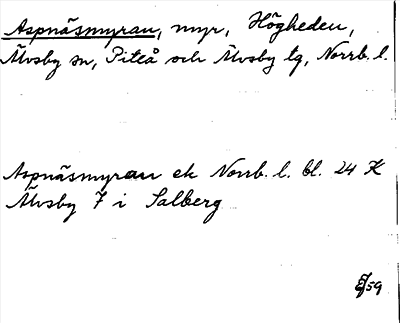 Aspnäsmyran, myr, Högheden,
Älvsby sn, Piteå och Älvsby tg, Norrb. l.
Aspnäsmyran ek Norrb. l. bl. 24 K
Älvsby 7 i Salberg
59